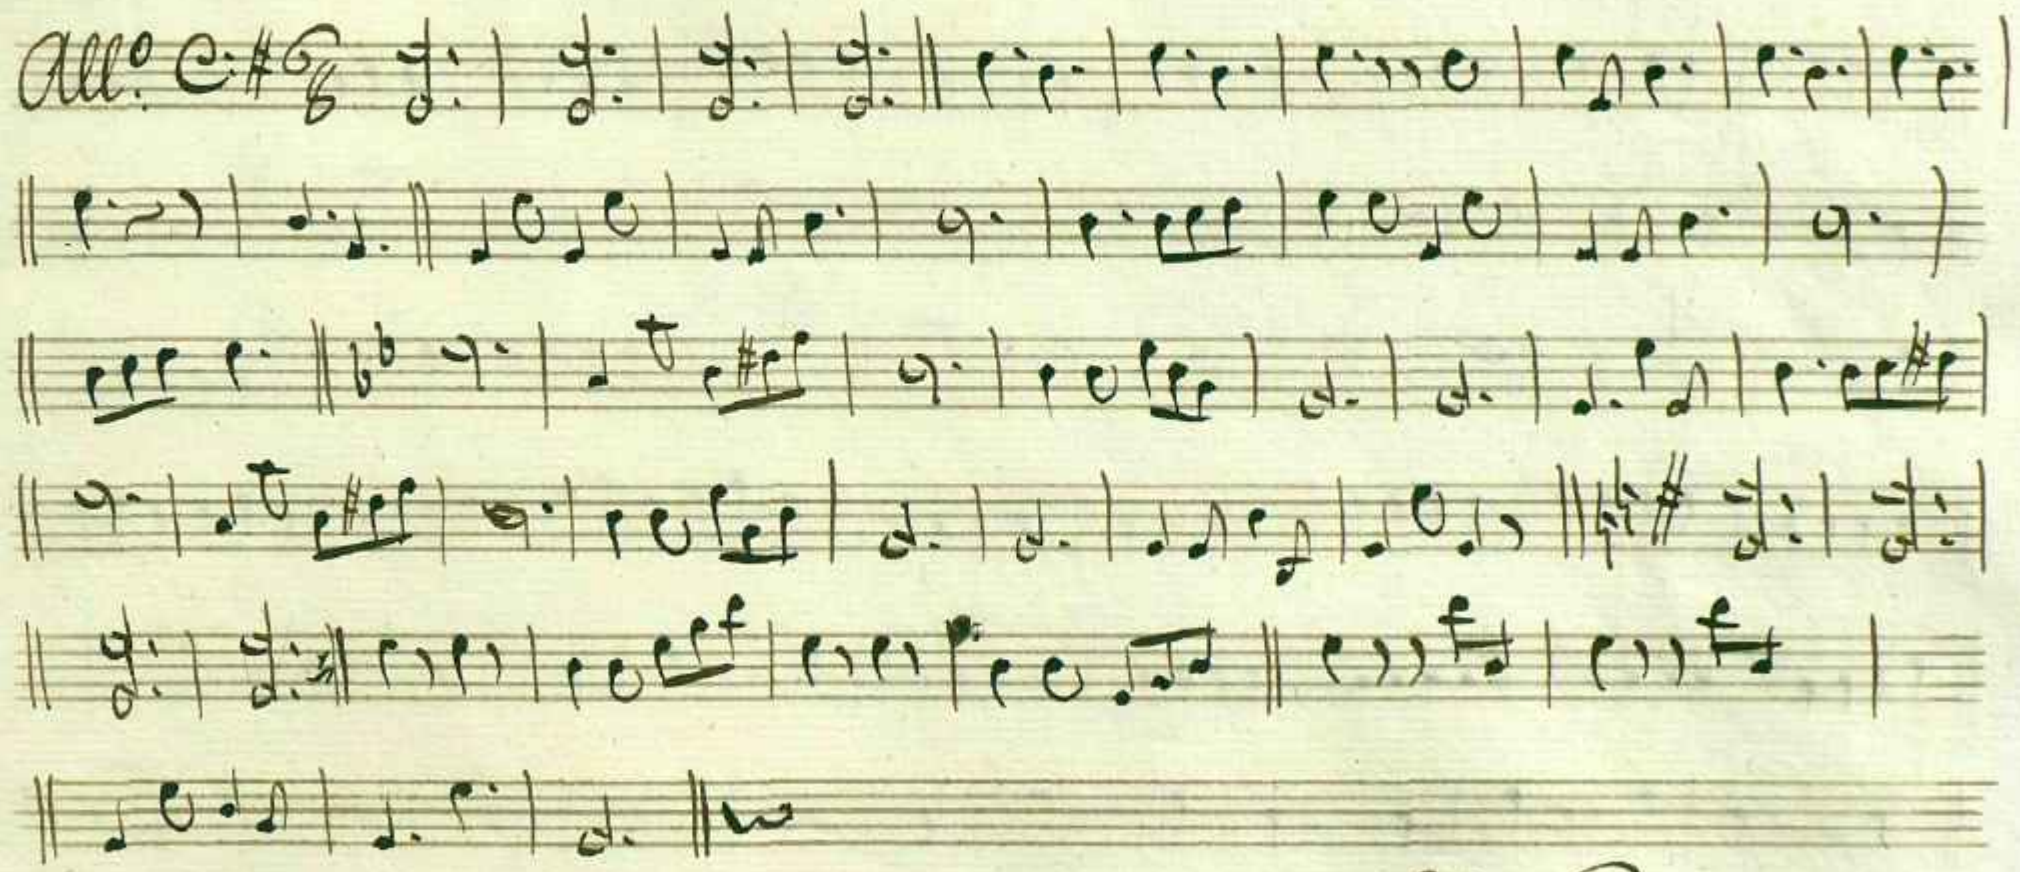 All.º 6 8